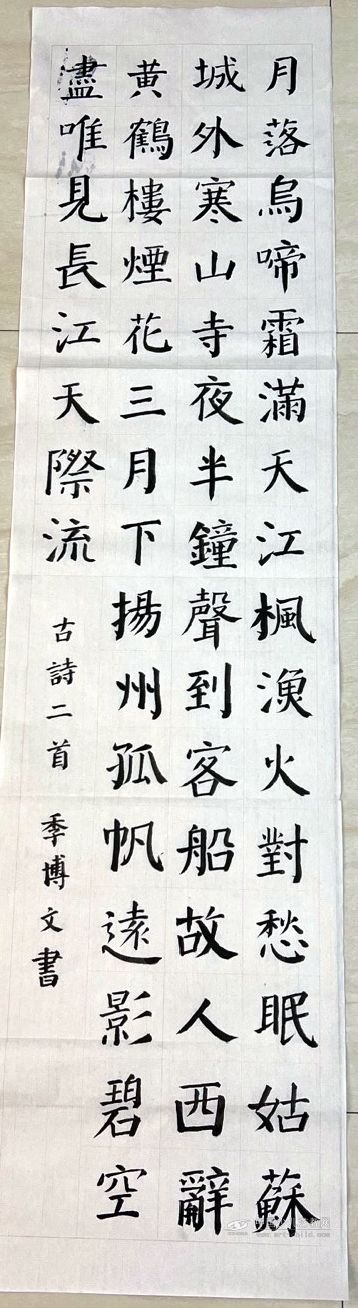 月落烏啼霜滿天江楓漁火對愁眠姑蘇
城外寒山寺夜半鐘聲到客船故人西辭
黄鶴樓煙花三月下揚州孤帆遠影碧空
盡唯見長江天際流
古詩二首 季博文書